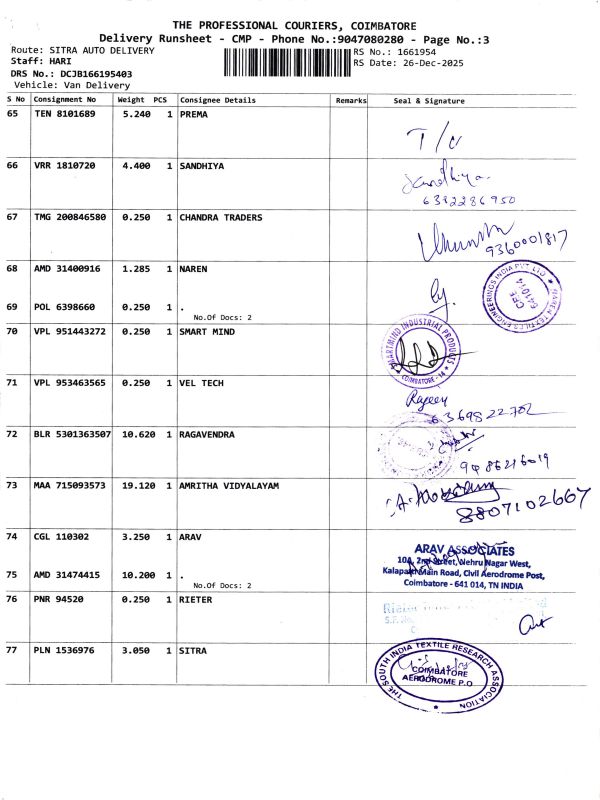 THE PROFESSIONAL COURIERS, COIMBATORE
Delivery Runsheet - CMP - Phone No.:9047080280 - Page No.:3
Route: SITRA AUTO DELIVERY
RS No.: 1661954
Staff: HARI
RS Date: 26-Dec-2025
DRS No.: DCJB166195403
Vehicle: Van Delivery
S No Consignment No Weight PCS Consignee Details Remarks Seal & Signature
65 TEN 8101689 5.240 1 PREMA
66 VRR 1810720 4.400 1 SANDHIYA
Sandhiya
6382286950
67 TMG 200846580 0.250 1 CHANDRA TRADERS
9360001817
68 AMD 31400916 1.285 1 NAREN
NAREN TEXTILES ENGINEERINGS INDIA PVT. LTD
CBE
641014
69 POL 6398660 0.250 1 .
No.Of Docs: 2
70 VPL 951443272 0.250 1 SMART MIND
SMARTMIND INDUSTRIAL PRODUCTS
COIMBATORE - 14
71 VPL 953463565 0.250 1 VEL TECH
Rajeev
6369822702
72 BLR 5301363507 10.620 1 RAGAVENDRA
73 MAA 715093573 19.120 1 AMRITHA VIDYALAYAM
8807102667
74 CGL 110302 3.250 1 ARAV
ARAV ASSOCIATES
10A, 2nd Street, Nehru Nagar West,
Kalapatti Main Road, Civil Aerodrome Post,
Coimbatore - 641 014, TN INDIA
75 AMD 31474415 10.200 1 .
No.Of Docs: 2
76 PNR 94520 0.250 1 RIETER
Rieter
77 PLN 1536976 3.050 1 SITRA
THE SOUTH INDIA TEXTILE RESEARCH ASSOCIATION
COIMBATORE
AERODROME P.O